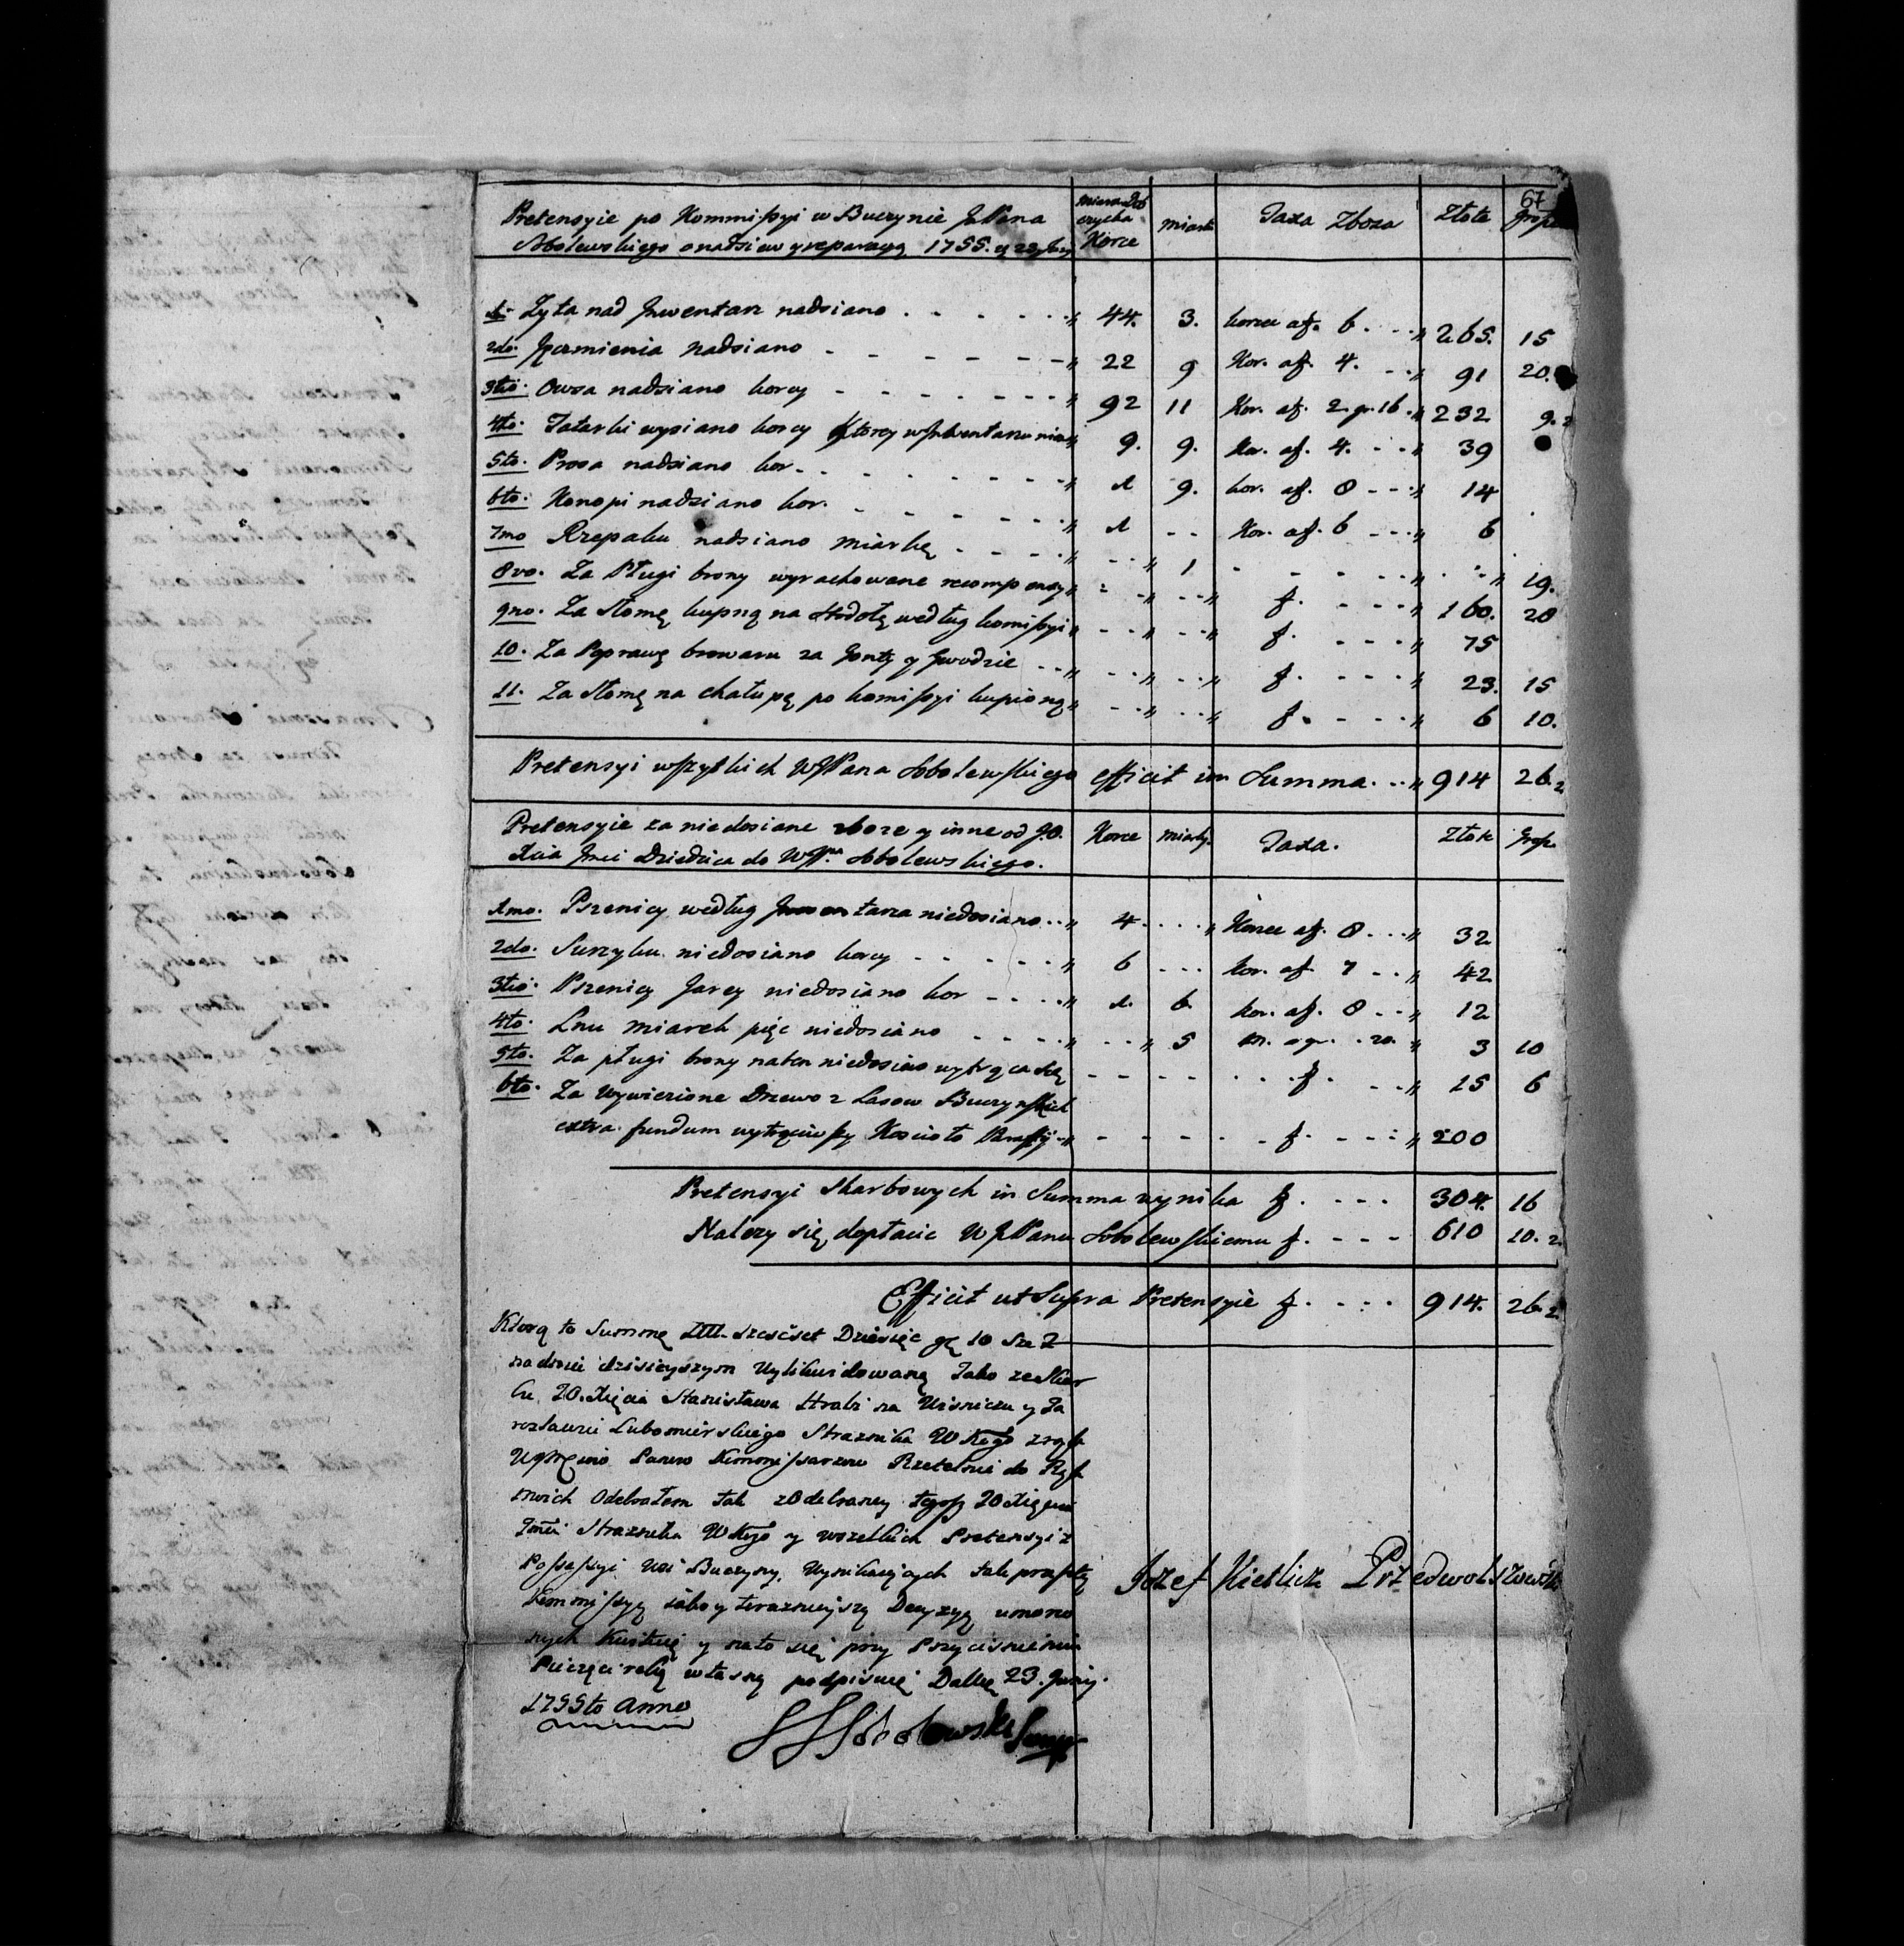 67
Pretensyie po Kommissyi w Buczynie JPana miara Dob miarki Taxa Zboza Złote Grosze
Sobolewskiego o nadsiew y reparacyą 1755. y 23 Juny czycka Korce
1. Zyta nad Jnwentarz nadsiano 44. 3. korzec af. 6. 265. 15
2do. Jęczmienia nadsiano 22 9 Kor. af. 4. 91 20.
3tio. Owsa nadsiano korcy 92 11 Kor. af. 2 gr. 16. 232 9. 2
4to. Tatarki wysiano korcy Ktorey w Jnwentarzu nie 9. 9. Kor. af. 4. 39
5to. Prosa nadsiano kor. 1 9. kor. af. 8 14
6to. Konopi nadsiano kor. 1 Kor. af. 6 6
7mo Rzepaku nadsiano miarkę 1 19.
8vo. Za Pługi brony wyrachowane recompensy f. 160. 28
9no. Za słomę kupną na stodołę według komissyi f. 75
10. Za Poprawę browaru za Gonty y Gwodzie f. 23. 15
11. Za słomę na chałupę po komissyi kupioną f. 6 10.
Pretensyi wszytkich WJPana Sobolewskiego efficit in Summa 914 26. 2
Pretensyie za niedosiane zboze y inne od J.O. Korce miarki. Taxa. Złote Grosz.
Xcia Jmci Dziedzica do WJPna Sobolewskiego.
1mo. Pszenicy według Jnwentarza niedosiano 4 Korzec af. 8 32
2do. Surzyku niedosiano korcy 6 kor. af. 7 42
3tio. Pszenicy Jarey niedosiano kor 1. 6. kor. af. 8 12
4to. Lnu miarek pięc niedosiano 5 m. a gr. 20. 3 10
5to. Za pługi brony na ten niedosiew wytrąca się f. 15 6
6to. Za Wywiezione Drzewo z Lasow Buczynskich
extra fundum wytrąciwszy Koscioło Parafij f. 200
Pretensyi Skarbowych in Summa wynika f. 304. 16
Nalezy się dopłacic WJPanu Sobolewskiemu f. 610 10. 2
Efficit ut Supra Pretensyie f. 914. 26. 2
Ktorą to Summę szescset Dziesięc gr 10 sze 2
na dniu dzisieyszym Wylikwidowaną Jako ze Skar
bu J.O. Xięcia Stanisława Hrabi na Wisniczu y Ja
rosławiu Lubomirskiego Straznika WKgo z rąk
Panow Kommissarzow Rzetelnie do Rąk
moich Odebrałem tak z Odebraney tegosz JO Xięcia
Jmci Straznika WKgo y wszelkich Pretensyi z
Possessyi Wsi Buczyny, Wynikaiących tak przeszłą
Kommissyą iako y teraznieyszą Decyzyą umorzo
nych Kwituię y na to się przy Przycisnieniu
Pieczęci ręką własną podpisuię Datt 23. Juny.
1755to Anno
Sobolewski
Jozef Kietlicz Przedwolszowski